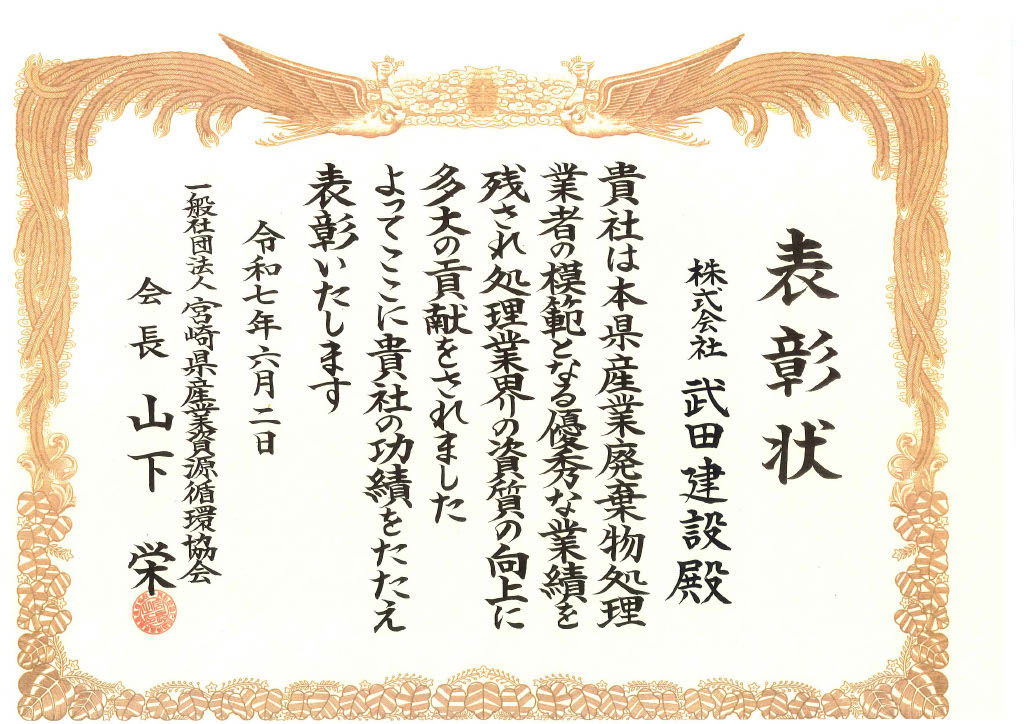 表彰状
株式会社 武田建設殿
貴社は本県産業廃棄物処理
業者の模範となる優秀な業績を
残され処理業界の資質の向上に
多大の貢献をされました
よってここに貴社の功績をたたえ
表彰いたします
令和七年六月二日
一般社団法人宮崎県産業資源循環協会
会長 山下 栄